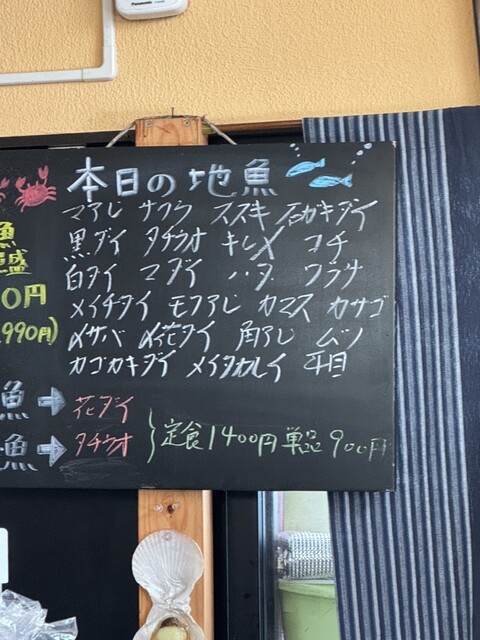 本日の地魚
マアジ サワラ スズキ 石ガキダイ
黒ダイ タチウオ キジメ コチ
白ダイ マダイ ハタ ワラサ
メイチダイ モロアジ カマス カサゴ
〆サバ 〆花ダイ 角アジ ムツ
カゴカキダイ メイタカレイ 平目
魚
盛
0円
990円)
魚 → 花ダイ
魚 → タチウオ
定食1400円 単品900円
Panasonic